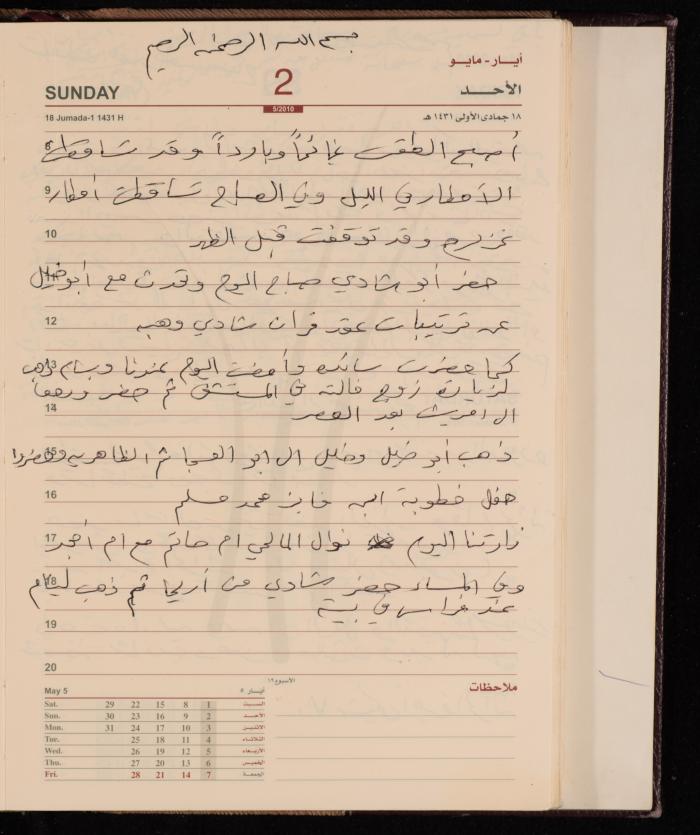 بسم الله الرحمن الرحيم
أيار - مايو
SUNDAY 2 الأحـــد
5/2010
18 Jumada-1 1431 H ١٨ جمادى الأولى ١٤٣١ هـ
أصبح الطقس غائماً وبارداً وقد تساقطت
9 الأمطار في الليل وفي الصباح تساقطت امطار
10 غزيرة وقد توقفت قبل الظهر
حضر أبو شادي صباح اليوم وتحدث مع أبو خليل
12 عن ترتيبات عقد قران شادي وهبه
13 كما حضرت سائده وأمضت اليوم عندنا وبسام ذهب
لزيارة زوج خالته في المستشفى ثم حضر
14 الى بعد العصر
15 ذهب أبو خليل وخليل الى ابو العجا ثم الظاهرية وحضروا
16 حفل خطوبة ابن فايز محمد مسلم
17 زارتنا اليوم نوال المالحي ام حاتم مع ام أمجد
18 وفي المساء حضر شادي من أريحا ثم ذهب لينام
عند فراس في بيته
19
20
الأسبوع ١٩
ملاحظات
May 5 أيـار ٥
Sat. 29 22 15 8 1 الســبت
Sun. 30 23 16 9 2 الأحــد
Mon. 31 24 17 10 3 الاثنين
Tue. 25 18 11 4 الثلاثاء
Wed. 26 19 12 5 الأربعاء
Thu. 27 20 13 6 الخميس
Fri. 28 21 14 7 الجمعة